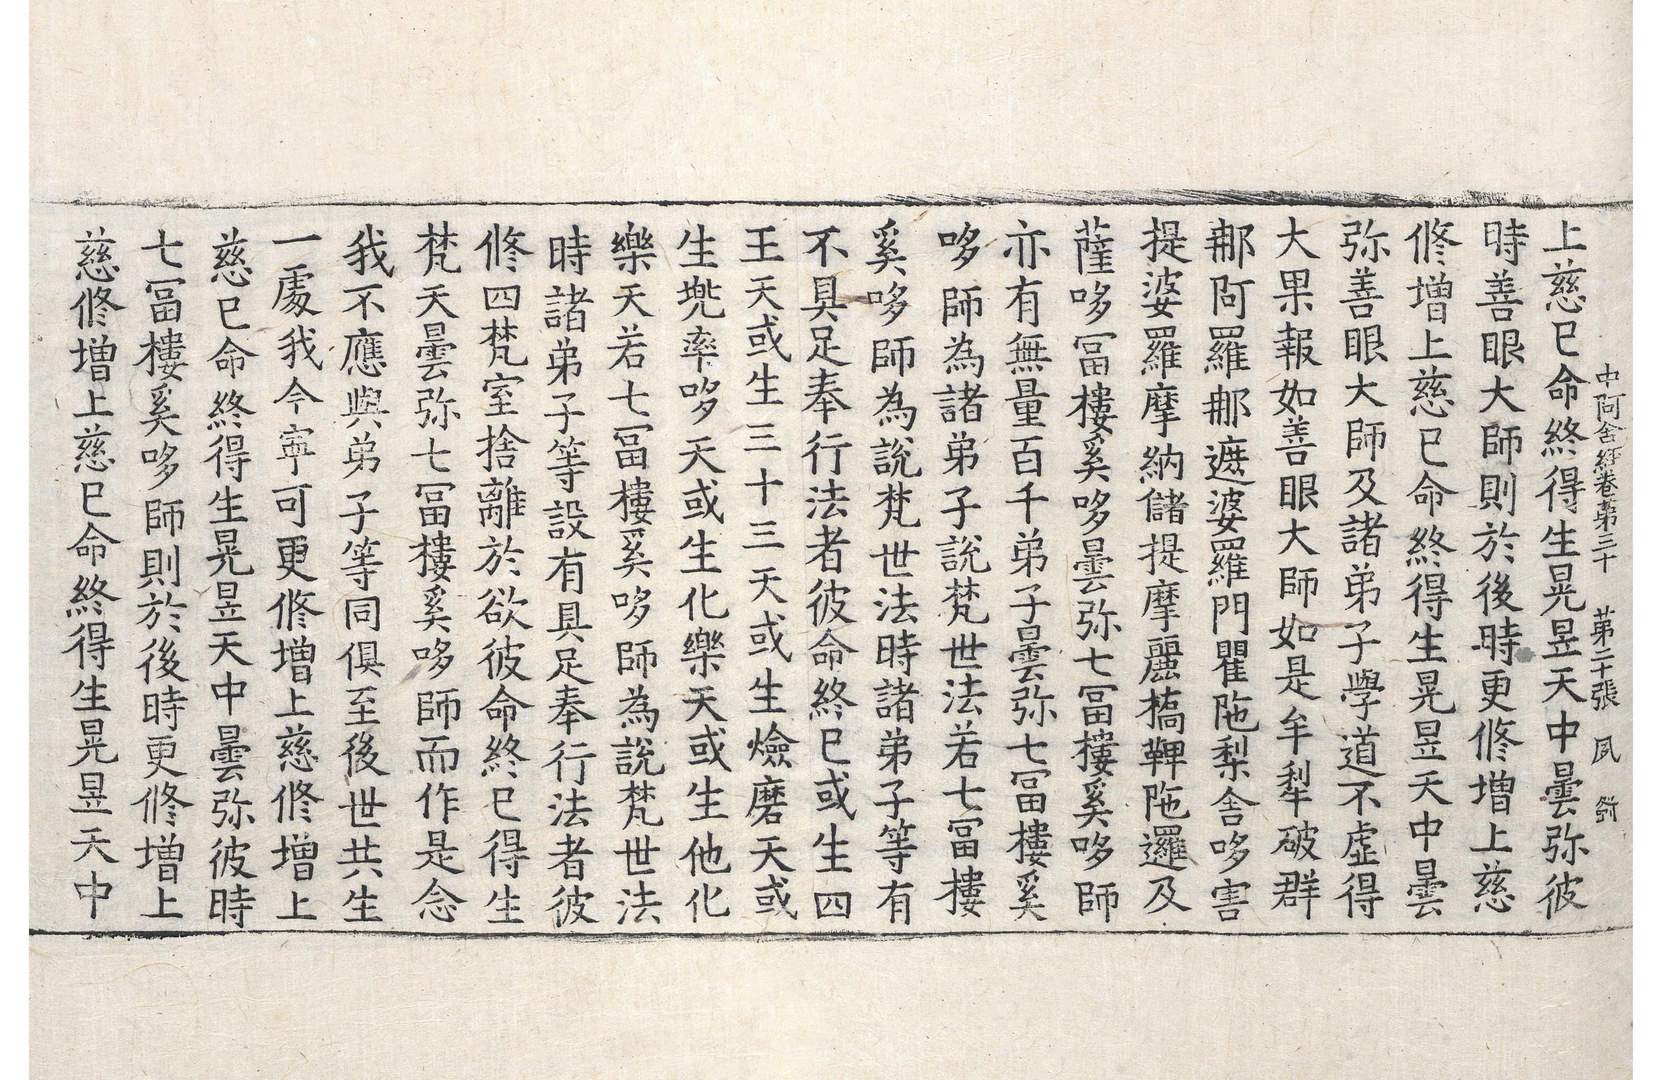 中阿含經卷第三十　第二十張　夙
上慈已命終得生晃昱天中曇弥彼
時善眼大師則於後時更修增上慈
修增上慈已命終得生晃昱天中曇
弥善眼大師及諸弟子學道不虛得
大果報如善眼大師如是牟犁破群
那阿羅那遮婆羅門瞿陁梨舍哆害
提婆羅摩納儲提摩麗橋鞞陁邏及
薩哆冨樓奚哆曇弥七冨樓奚哆師
亦有無量百千弟子曇弥七冨樓奚
哆師為諸弟子說梵世法若七冨樓
奚哆師為說梵世法時諸弟子等有
不具足奉行法者彼命終已或生四
王天或生三十三天或生燄磨天或
生兠率哆天或生化樂天或生他化
樂天若七冨樓奚哆師為說梵世法
時諸弟子等設有具足奉行法者彼
修四梵室捨離於欲彼命終已得生
梵天曇弥七冨樓奚哆師而作是念
我不應與弟子等同俱至後世共生
一處我今寜可更修增上慈修增上
慈已命終得生晃昱天中曇弥彼時
七冨樓奚哆師則於後時更修增上
慈修增上慈已命終得生晃昱天中